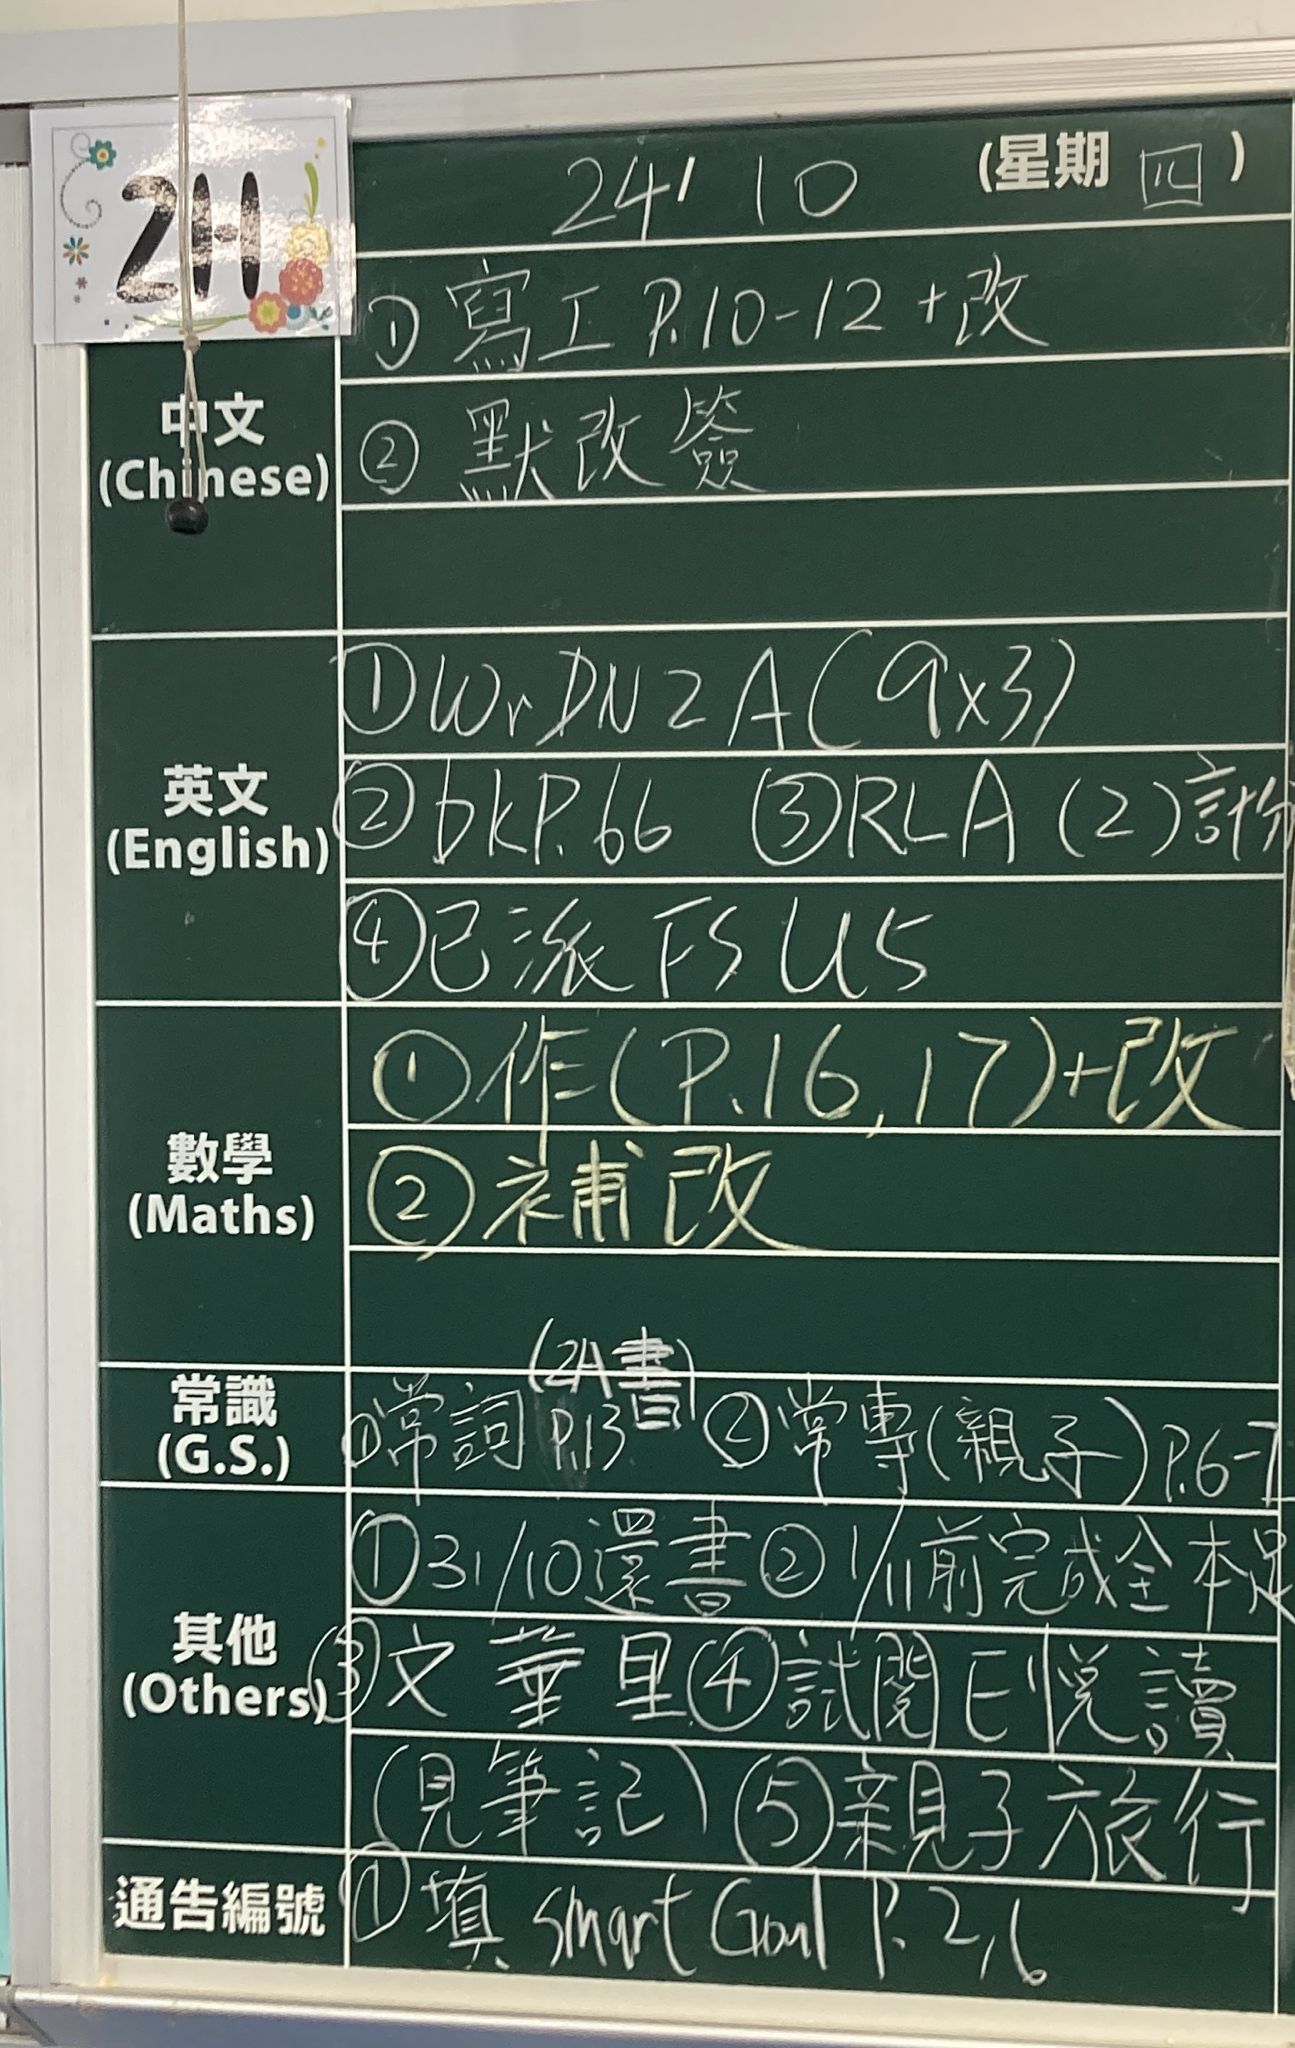 2H
24' 10 (星期 四)
中文
(Chinese)
① 寫工 P.10-12 +改
② 默改簽
英文
(English)
① Wr DN 2 A (9x3)
② bk P.66 ③ RLA (2) 計分
④ 已派 FS U5
數學
(Maths)
① 作 (P.16, 17)+改
② 補改
常識
(G.S.)
(2A書)
① 常詞 P.13 ② 常專(親子) P.6-7
其他
(Others)
① 31/10 還書 ② 1/11前完成全本
③ 文華里 ④ 試閱 E悅讀
(見筆記) ⑤ 親子旅行
通告編號
① 填 smart Goal P. 2,6